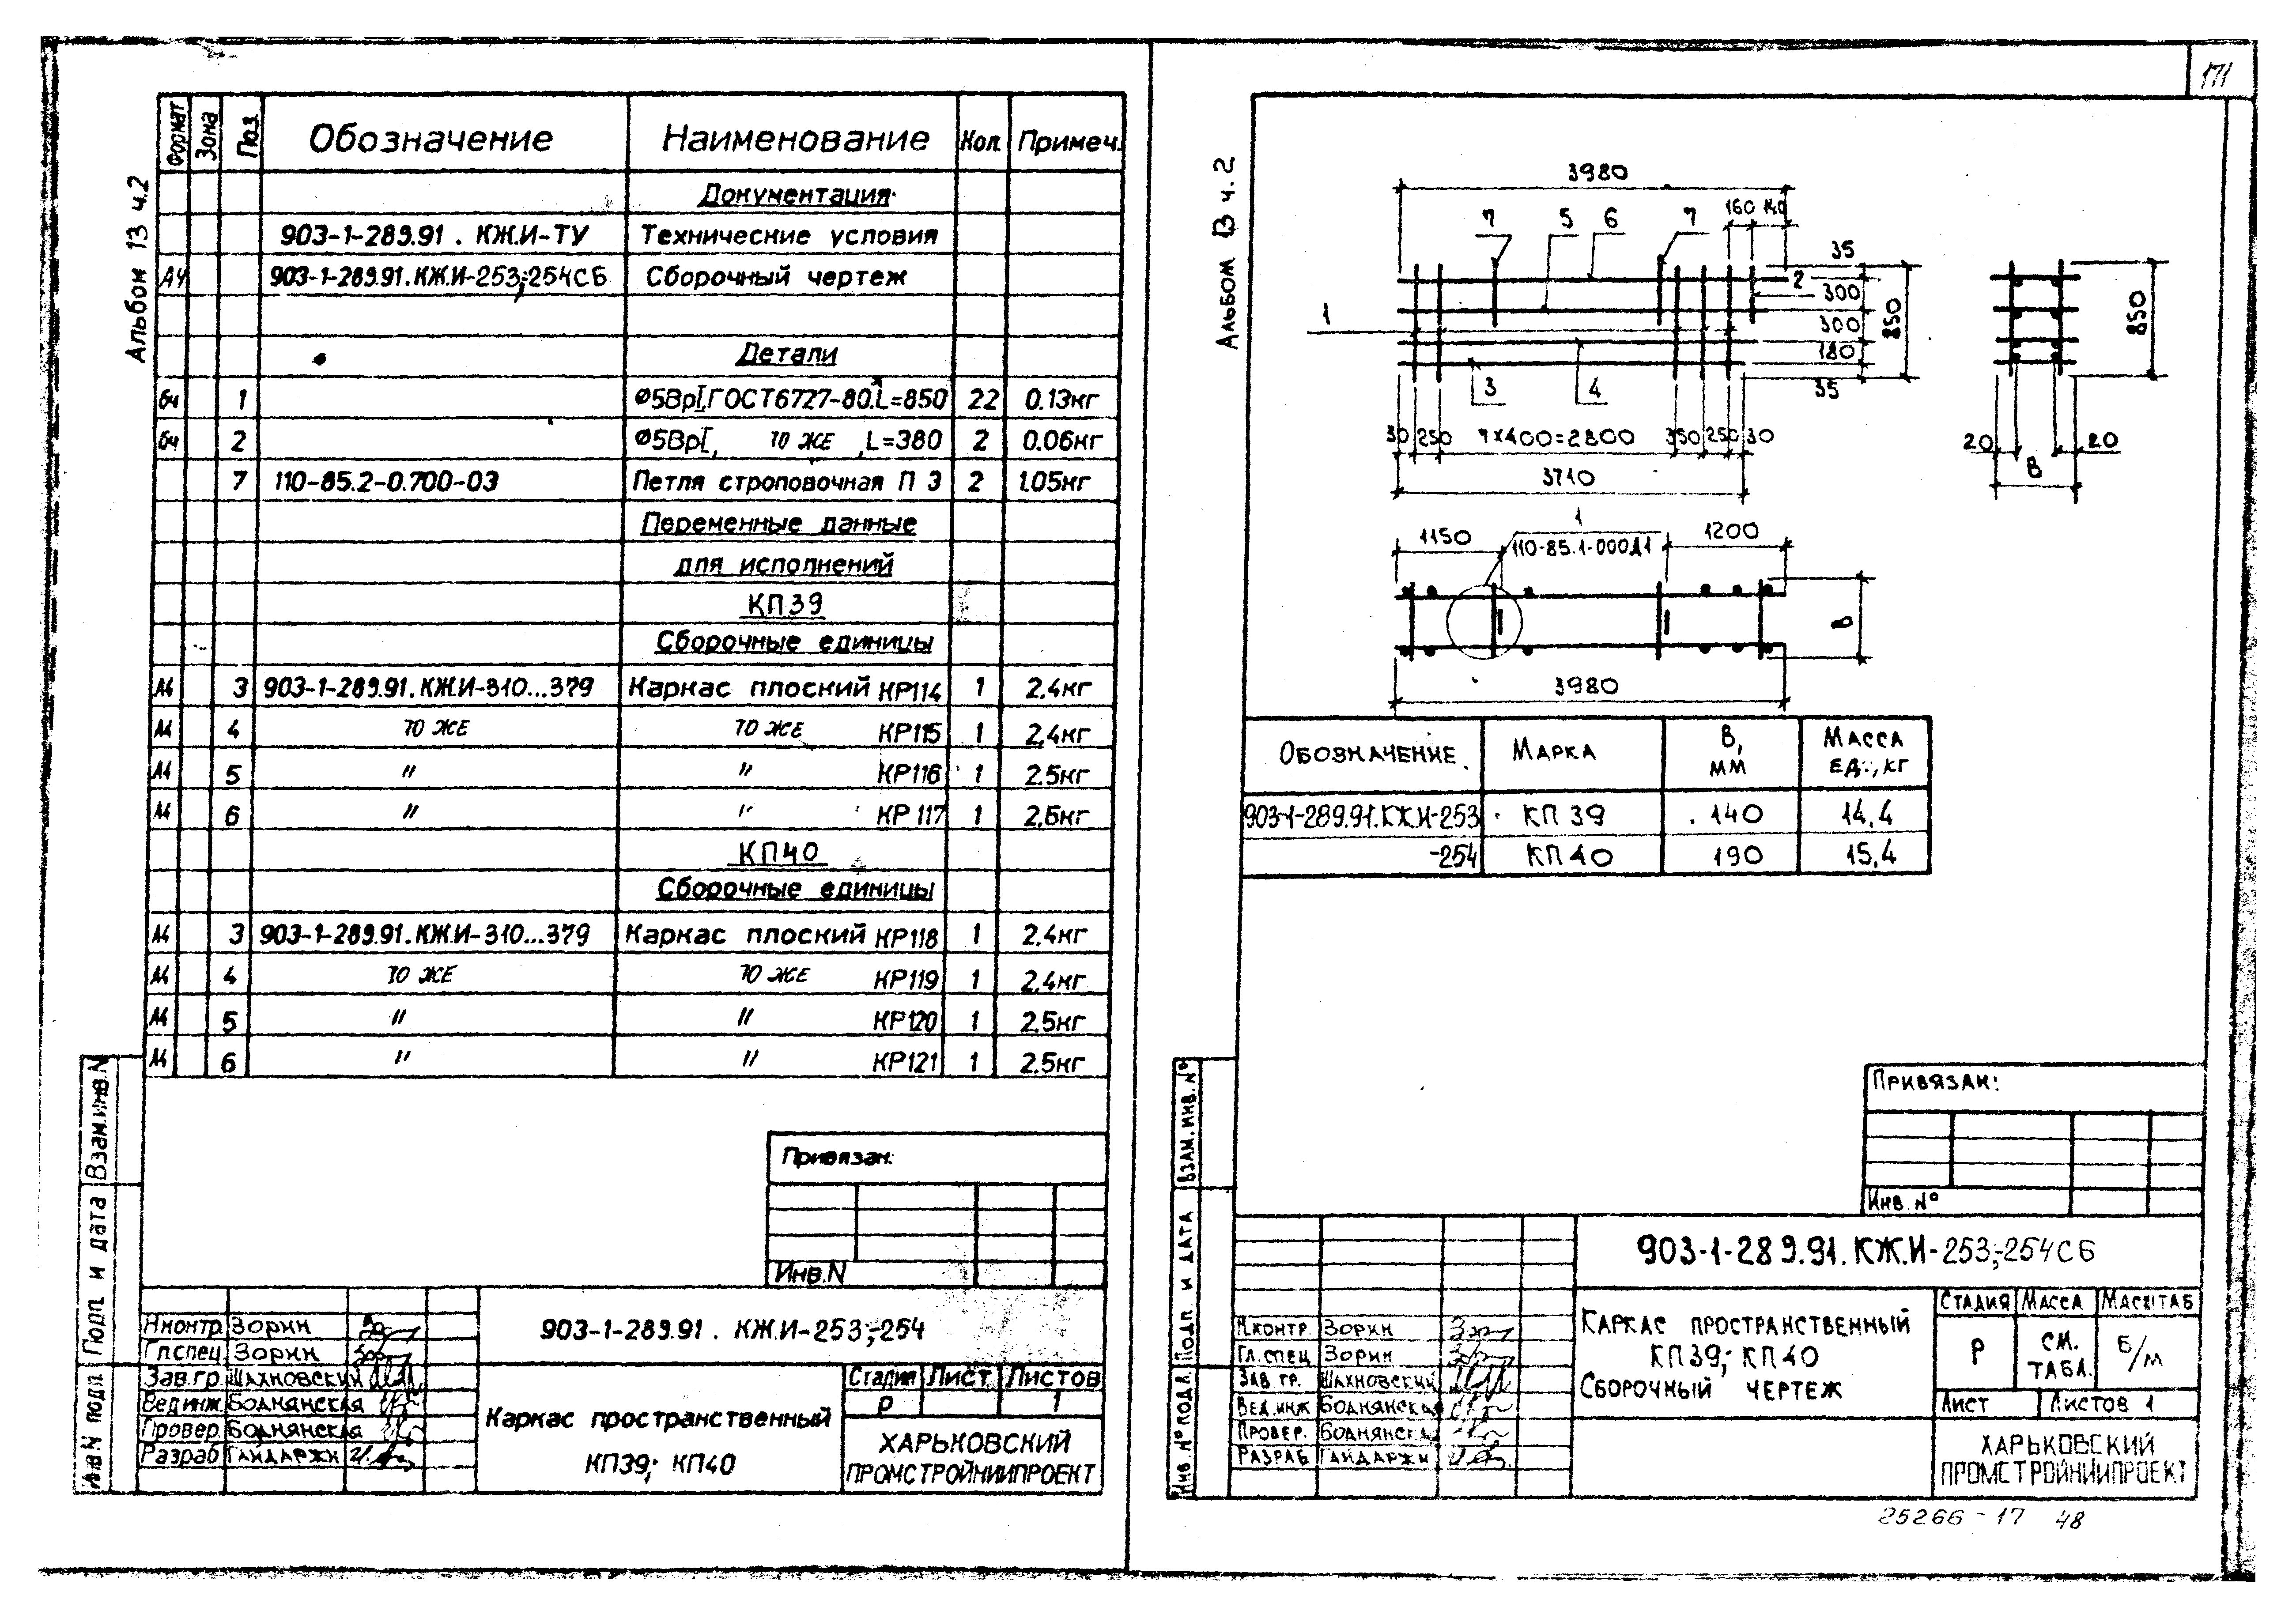 171
Альбом 13 ч.2
Формат Зона Поз. Обозначение Наименование Кол. Примеч.
Документация
903-1-289.91 . КЖ.И-ТУ Технические условия
А4 903-1-289.91.КЖ.И-253;-254СБ Сборочный чертеж
Детали
бч 1 Ø5ВрI,ГОСТ6727-80,L=850 22 0.13кг
бч 2 Ø5ВрI, ТО ЖЕ ,L=380 2 0.06кг
7 110-85.2-0.700-03 Петля строповочная П 3 2 1.05кг
Переменные данные
для исполнений
КП39
Сборочные единицы
А4 3 903-1-289.91.КЖ.И-310...379 Каркас плоский КР114 1 2.4кг
А4 4 ТО ЖЕ ТО ЖЕ КР115 1 2.4кг
А4 5 " " КР116 1 2.5кг
А4 6 " " КР117 1 2.5кг
КП40
Сборочные единицы
А4 3 903-1-289.91.КЖ.И-310...379 Каркас плоский КР118 1 2.4кг
А4 4 ТО ЖЕ ТО ЖЕ КР119 1 2.4кг
А4 5 " " КР120 1 2.5кг
А4 6 " " КР121 1 2.5кг
Привязан:
Инв.N
Взам.инв.N
Подп. и дата
Инв.N подл.
Н.контр. Зорин
Гл.спец. Зорин
Зав.гр. Шахновский
Вед.инж. Боднянская
Провер. Боднянская
Разраб. Гайдаржи
903-1-289.91 . КЖ.И-253;-254
Каркас пространственный
КП39; КП40
Стадия Лист Листов
Р 1
ХАРЬКОВСКИЙ
ПРОМСТРОЙНИИПРОЕКТ
Альбом 13 ч.2
3980
7 5 6 7 160 140
35
2
300
1 300 850
180
3 4 35
30 250 7х400=2800 350 250 30
3710
850
20 20
В
1150 1 1200
110-85.1-000Д1
В
3980
Обозначение Марка В, мм Масса ед., кг
903-1-289.91.КЖ.И-253 КП 39 140 14,4
-254 КП 40 190 15,4
Привязан:
Инв. №
Взам.инв.№
Подп и дата
Инв №подл.
903-1-289.91.КЖ.И-253;-254СБ
Н.контр. Зорин
Гл.спец Зорин
Зав гр. Шахновский
Вед.инж Боднянская
Провер. Боднянская
Разраб Гайдаржи
Каркас пространственный
КП39; КП40
Сборочный чертеж
Стадия Масса Масштаб
Р см. табл. б/м
Лист Листов 1
ХАРЬКОВСКИЙ
ПРОМСТРОЙНИИПРОЕКТ
25266-17 48